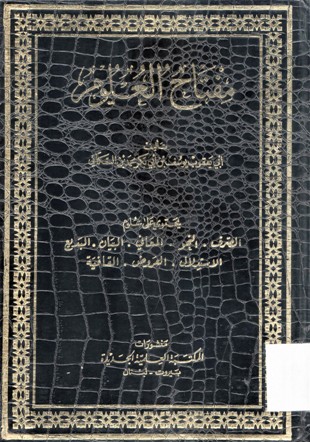 مفتاح العلوم
تأليف
أبي يعقوب يوسف بن أبي بكر محمد بن علي السكاكي
يحتوي على علوم
الصرف - النحو - المعاني - البيان - البديع
الاستدلال - العروض - القافية
منشورات
المكتبة العلمية الجديدة
بيروت - لبنان